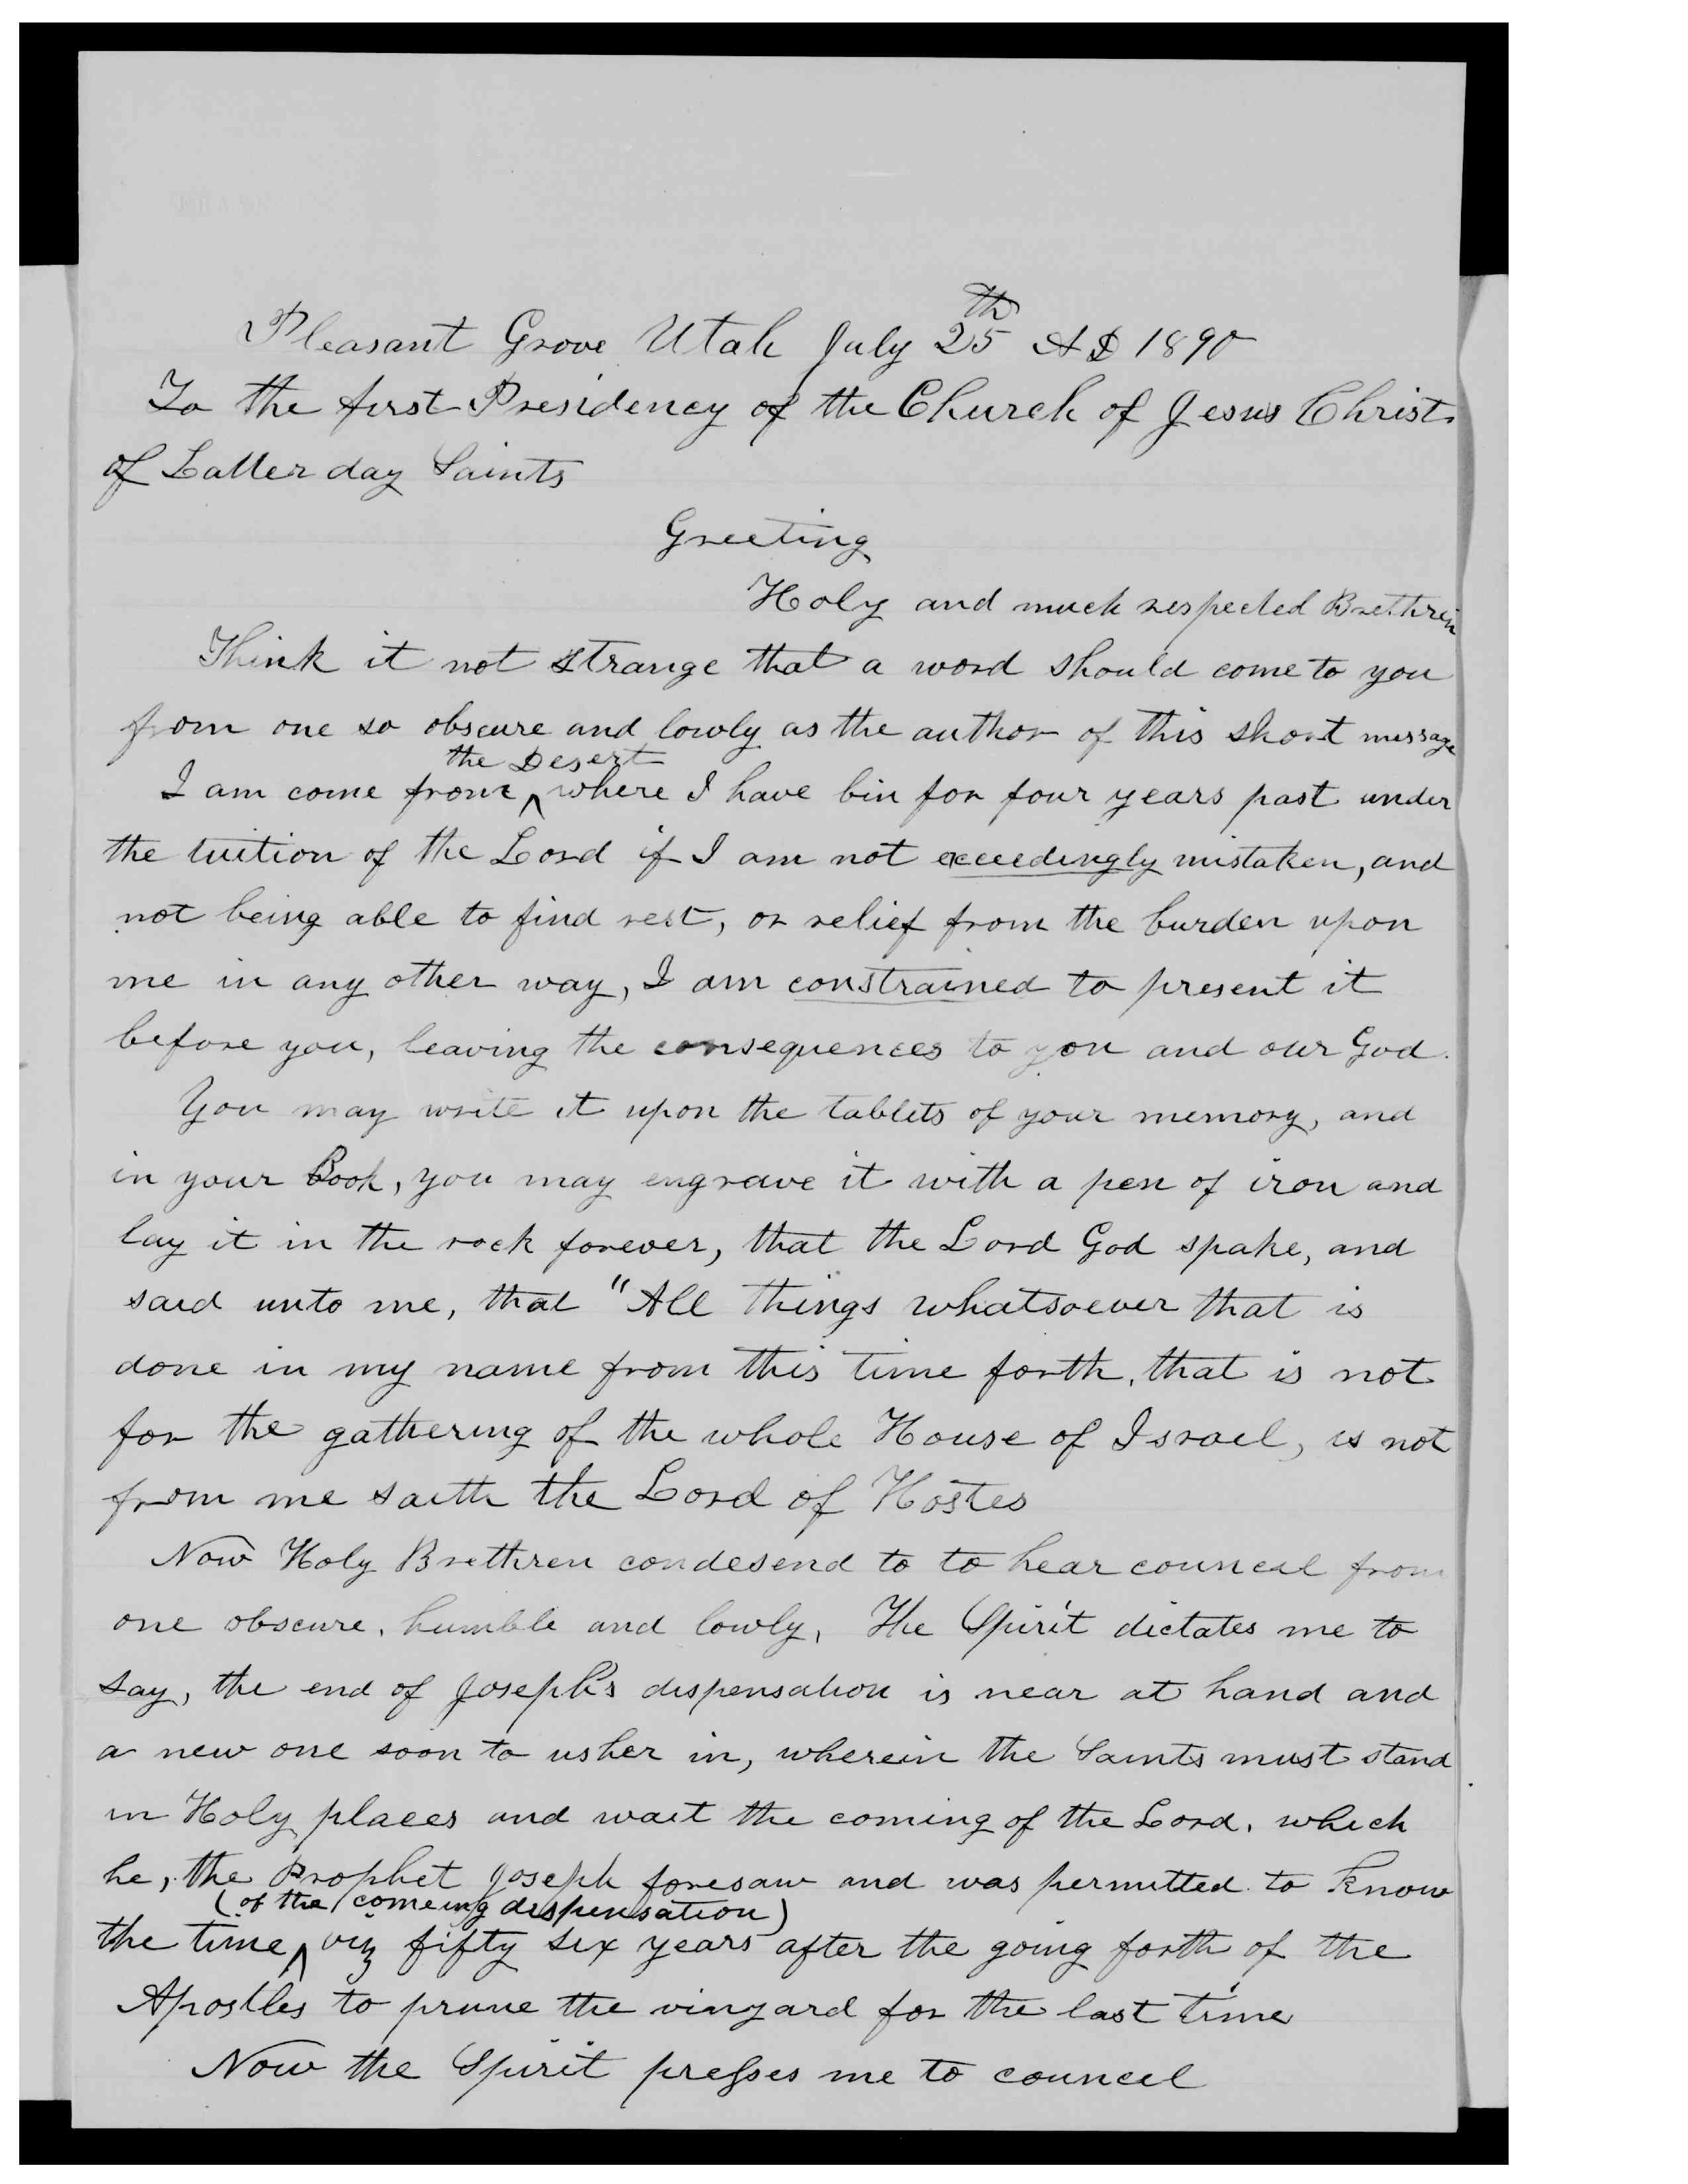 Pleasant Grove Utah July 25th AD 1890
To the first Presidency of the Church of Jesus Christ
of Latter day Saints
Greeting
Holy and much respected Brethrin
Think it not strange that a word should come to you
from one so obscure and lowly as the author of this short message
the Desert
I am come from ^ where I have bin for four years past under
the tuition of the Lord if I am not exceedingly mistaken, and
not being able to find rest, or relief from the burden upon
me in any other way, I am constrained to present it
before you, leaving the consequences to you and our God.
You may write it upon the tablets of your memory, and
in your Book, you may engrave it with a pen of iron and
lay it in the rock forever, that the Lord God spake, and
said unto me, that "All things whatsoever that is
done in my name from this time forth, that is not
for the gathering of the whole House of Israel, is not
from me saith the Lord of Hostes
Now Holy Brethren condesend to to hear councel from
one obscure, humble and lowly, The Spirit dictates me to
say, the end of Joseph's dispensation is near at hand and
a new one soon to usher in, wherein the Saints must stand
in Holy places and wait the coming of the Lord, which
he, the Prophet Joseph foresaw and was permitted to know
(of the comeing dispensation)
the time ^ viz fifty six years after the going forth of the
Apostles to prune the vinyard for the last time
Now the Spirit presses me to councel